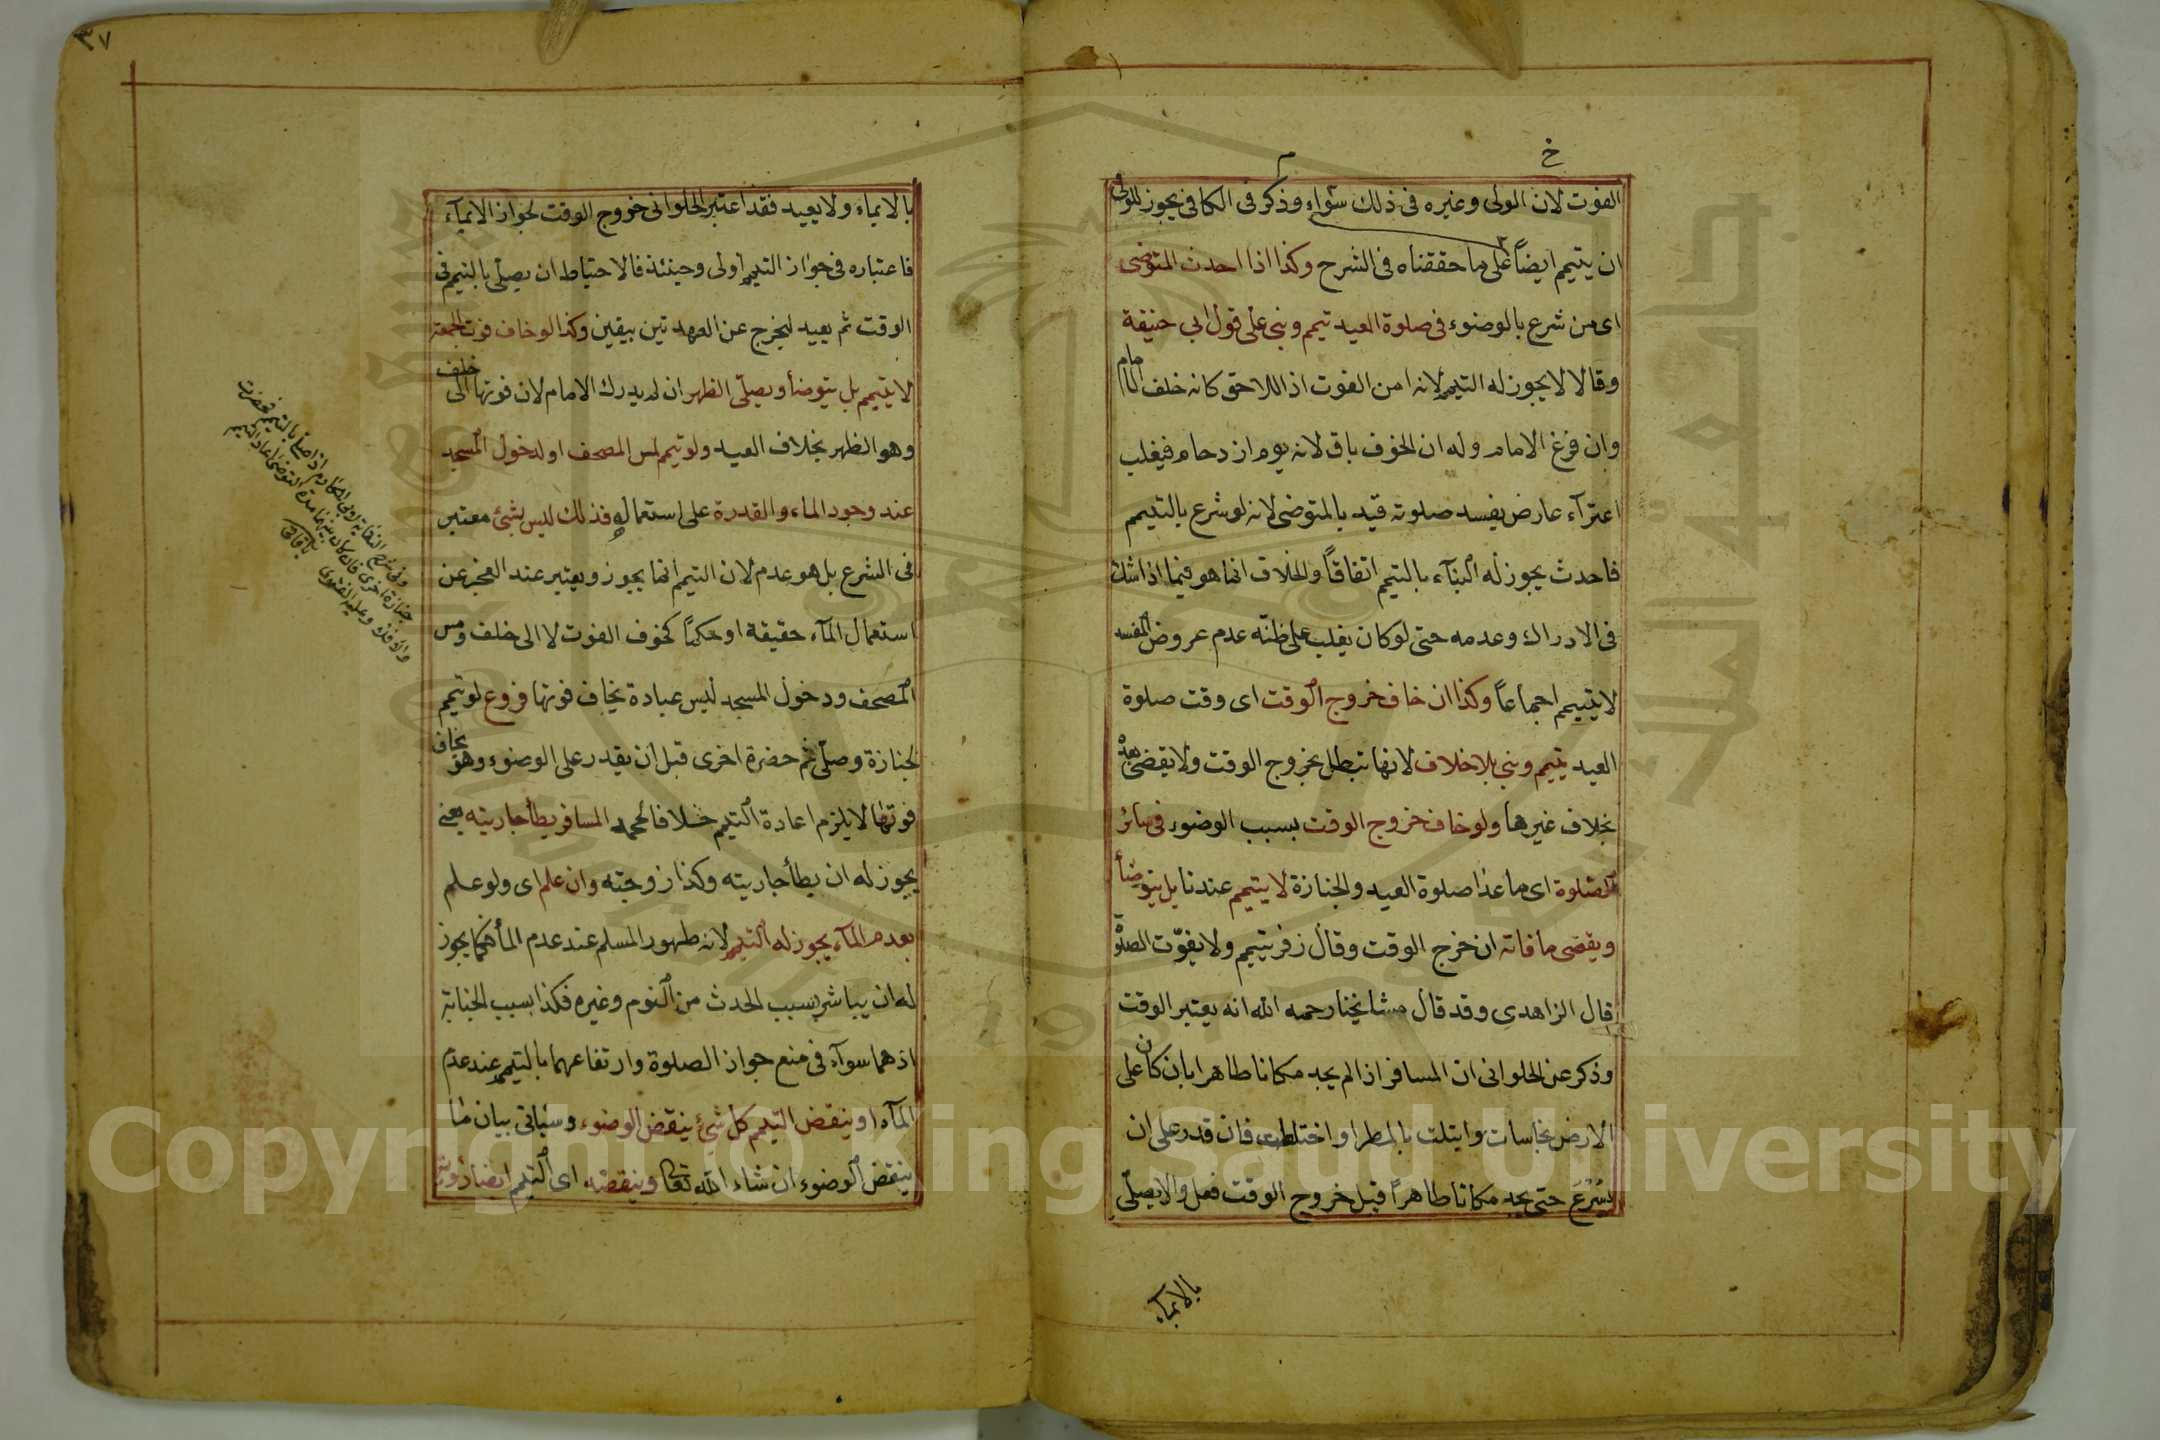 خ
الفوت لان الولى وغيره فى ذلك سواء وذكر فى الكافى يجوز للولى
ان يتيمم ايضاً على ما حققناه فى الشرح وكذا اذا احدث المتوضى
اى من شرع بالوضوء فى صلوة العيد تيمم وبنى على قول ابى حنيفة
وقالا لا يجوز له التيمم لانه امن الفوت اذ اللاحق كانه خلف الامام
وان فرغ الامام وله ان الخوف باق لانه يوم ازدحام فيغلب
اعترآء عارض يفسد صلوته قيد بالمتوضى لانه لو شرع بالتيمم
فاحدث يجوز له البنآء بالتيمم اتفاقاً والخلاف انما هو فيما اذا شك
فى الادراك وعدمه حتى لو كان يغلب على ظنّه عدم عروض المفسد
لا يتيمم اجماعاً وكذا ان خاف خروج الوقت اى وقت صلوة
العيد يتيمم ويبنى بلا خلاف لانها تبطل بخروج الوقت ولا يقضى بعده
بخلاف غيرها ولو خاف خروج الوقت بسبب الوضوء فى سائر
الصلوة اى ما عدا صلوة العيد والجنازة لا يتيمم عندنا بل يتوضأ
ويقضى ما فاته ان خرج الوقت وقال زفر يتيمم ولا يفوّت الصلوة
قال الزاهدى وقد قال مشايخنا رحمه الله انه يعتبر الوقت
وذكر عن الحلوانى ان المسافر اذا لم يجد مكانا طاهرا بان كان على
الارض نجاسات وابتلت بالمطر او اختلطت فان قدر على ان
يسرع حتى يجد مكانا طاهراً قبل خروج الوقت فعل والا يصلّى
بالايماء
٣٧
بالايماء ولا يعيد فقد اعتبر الحلوانى خروج الوقت لجواز الايمآء
فاعتباره فى جواز التيمم اولى وحينئذ فالاحتياط ان يصلى بالتيمم فى
الوقت ثم يعيد ليخرج عن العهدتين بيقين وكذا لو خاف فوت الجمعة
لا يتيمم بل يتوضأ ويصلّى الظهر ان لم يدرك الامام لان فوتها الى خلف
وهو الظهر بخلاف العيد ولو تيمم لمس المصحف او لدخول المسجد
عند وجود الماء والقدرة على استعماله فذلك ليس بشئ معتبر
فى الشرع بل هو عدم لان التيمم انما يجوز ويعتبر عند العجز عن
استعمال المآء حقيقة او حكماً كخوف الفوت لا الى خلف ومس
المصحف ودخول المسجد ليس عبادة يخاف فوتها فروع لو تيمم
لجنازة وصلّى ثم حضرة اخرى قبل ان يقدر على الوضوء وهو يخاف
فوتها لا يلزم اعادة التيمم خلافا لمحمد المسافر يطأ جاريته يعنى
يجوز له ان يطأ جاريته وكذا زوجته وان علم اى ولو علم
بعدم المآء يجوز له التيمم لانه طهور المسلم عند عدم المآء فكما يجوز
له ان يباشر بسبب الحدث من النوم وغيره فكذا بسبب الجنابة
اذ هما سوآء فى منع جواز الصلوة وارتفاعهما بالتيمم عند عدم
المآء وينقض التيمم كل شئ ينقض الوضوء وسياتى بيان ما
ينقض الوضوء ان شاء الله تعالى وينقضه اى التيمم ايضا رؤية
Copyright © King Saud University